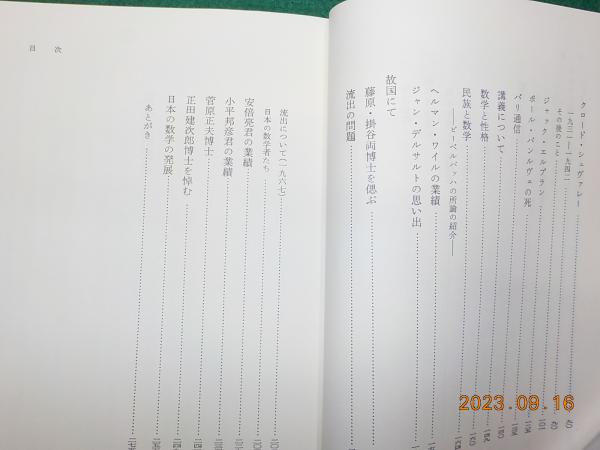 クロード・シュヴァレー
一九三一—一九四二
その後のこと
ジャック・エルブラン
ポール・パンルヴェの死
パリ通信
講義について
数学と性格
民族と数学
——ビーベルバッハの所論の紹介——
ヘルマン・ワイルの業績
ジャン・デルサルトの思い出
故国にて
藤原・掛谷両博士を偲ぶ
流出の問題
流出について(一九六七)
日本の数学者たち
安倍亮君の業績
小平邦彦君の業績
菅原正夫博士
正田建次郎博士を悼む
日本の数学の発展
あとがき
目次
2023.09.16